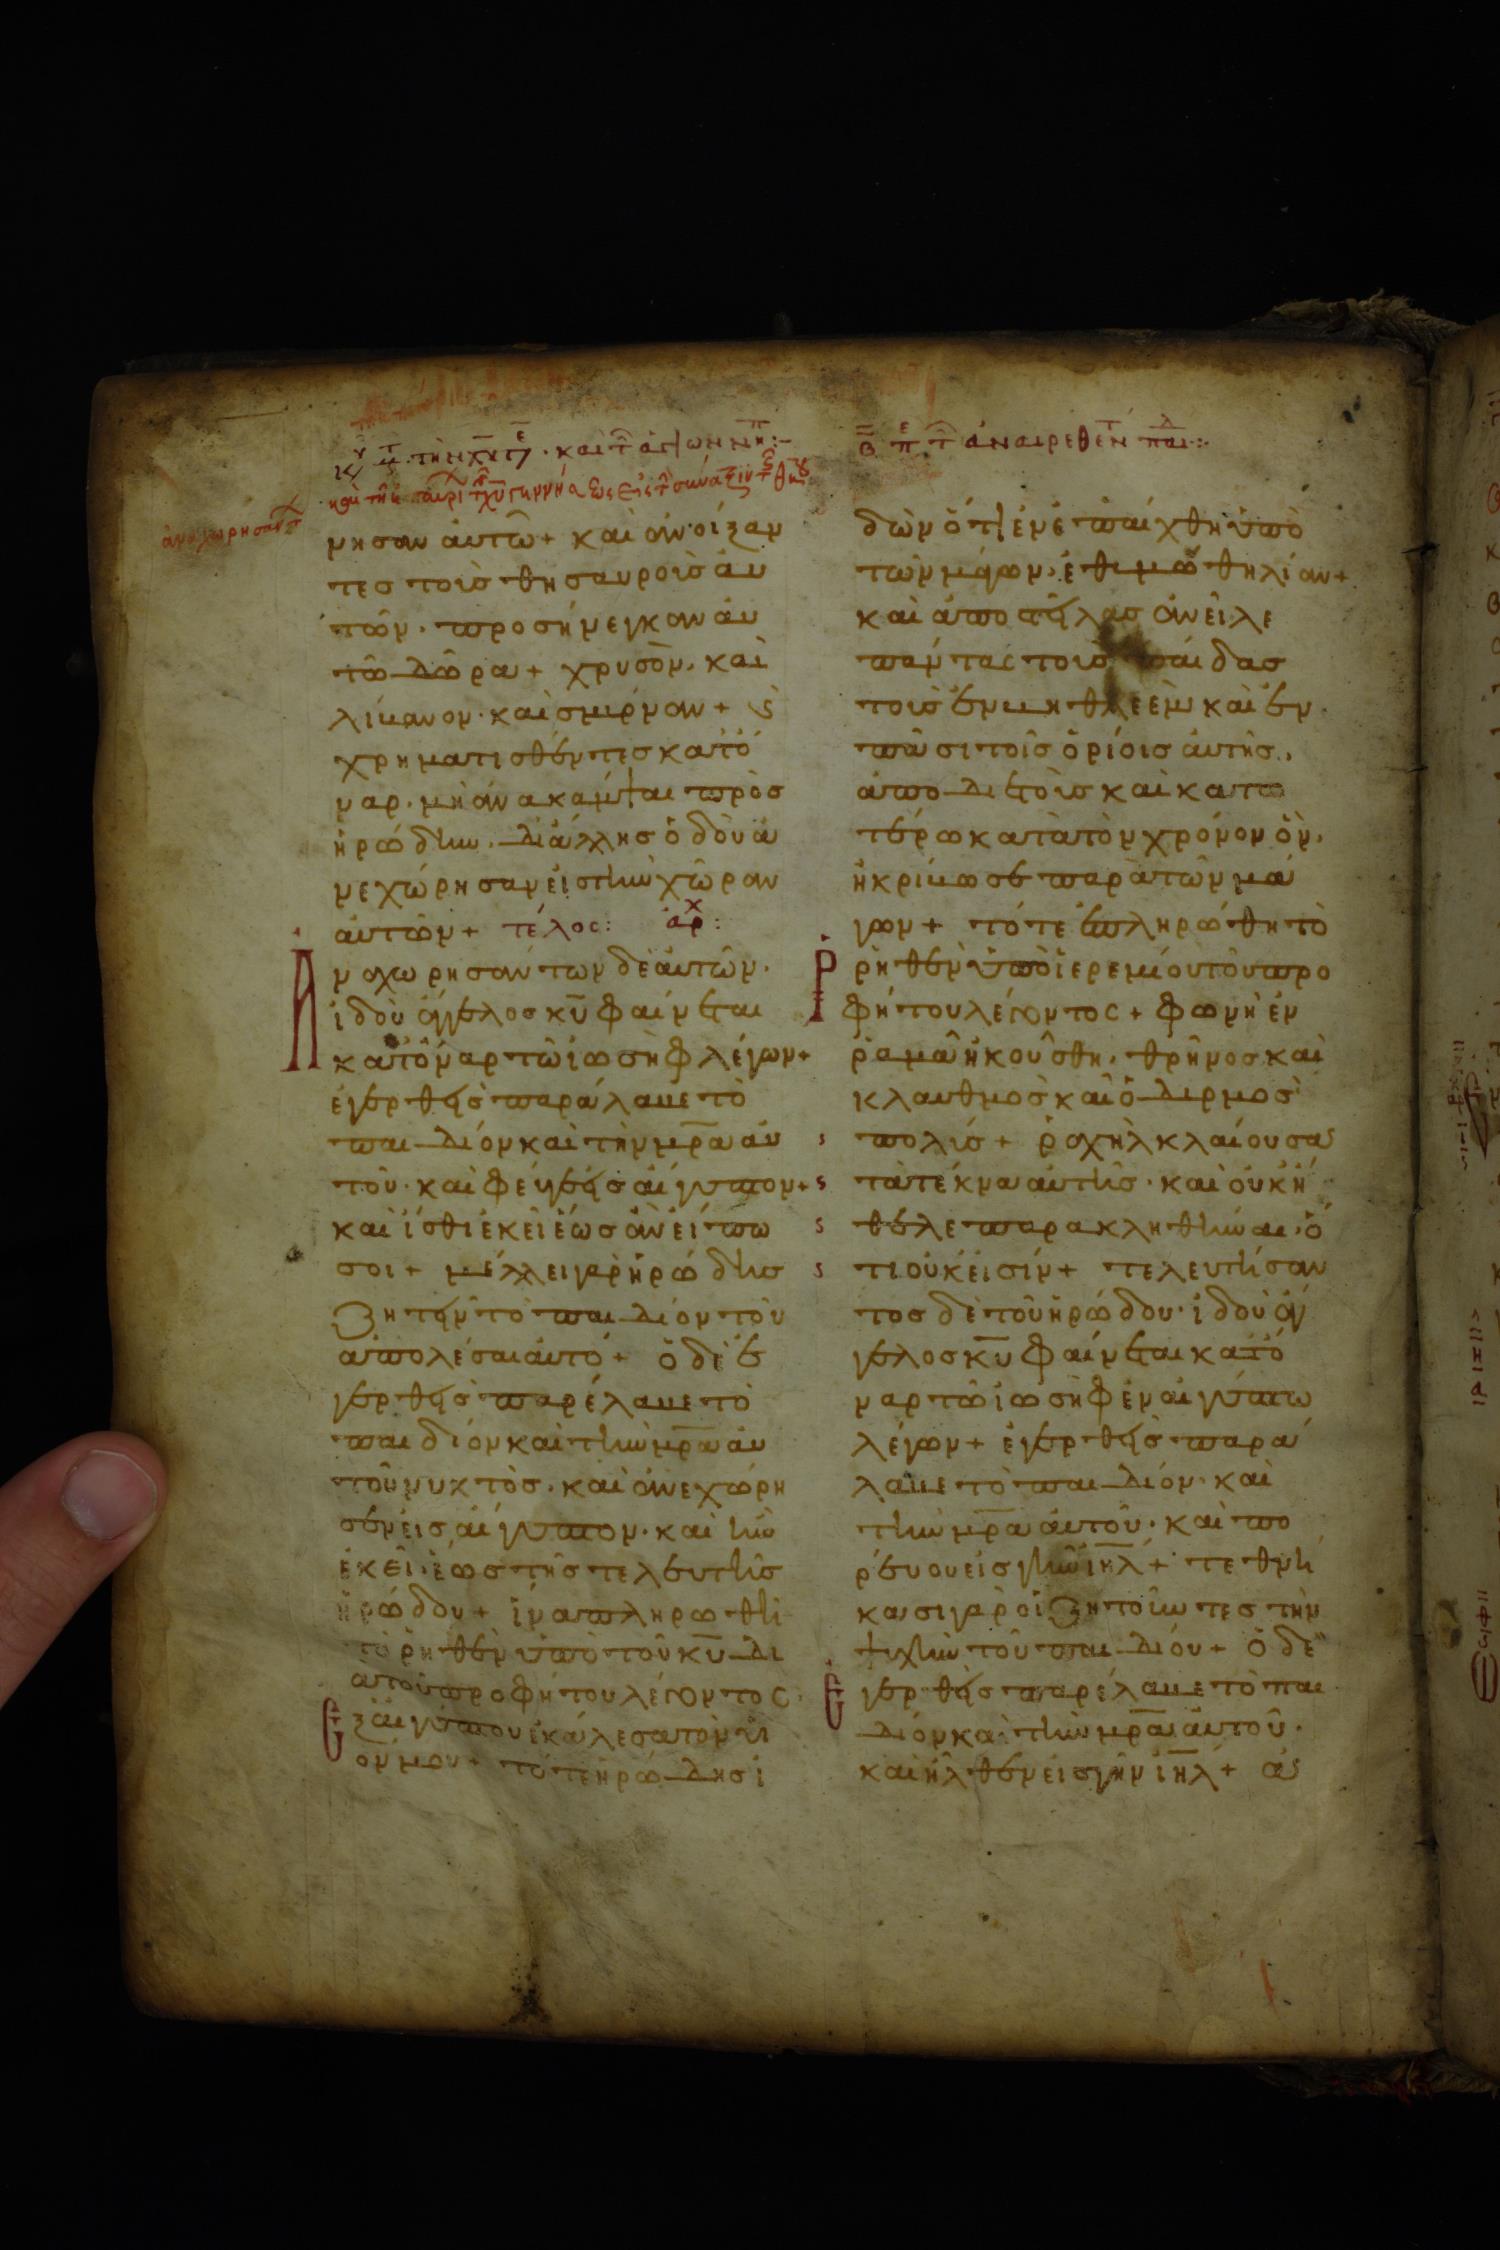 νησαν αὐτῶ + καὶ ἀνοίξαν
τες τοὺς θησαυροὺς αὐ
τῶν · προσήνεγκαν αὐ
τῶ δῶρα + χρυσὸν · καὶ
λίβανον · καὶ σμύρναν + ϛ
χρηματισθέντες κατό
ναρ · μὴ ἀνακάμψαι πρὸς
ἡρώδην · δι ἄλλης ὁδοῦ ἀ
νεχώρησαν εἰς τὴν χώραν
αὐτῶν + τέλος : ἀρχ :
Ἀναχωρησάντων δὲ αὐτῶν ·
ἰδοὺ ἄγγελος κ̅υ̅ φαίνεται
κατόναρ τῶ ἰωσὴφ λέγων +
ἐγερθεὶς παράλαβε τὸ
παιδίον καὶ τὴν μ̅ρ̅α̅ αὐ
τοῦ · καὶ φεῦγε εἰς αἴγυπτον +
καὶ ἴσθι ἐκεῖ ἕως ἂν εἴπω
σοι + μέλλει γὰρ ἡρώδης
ζητεῖν τὸ παιδίον τοῦ
ἀπολέσαι αὐτό + ὁ δὲ ἐ
γερθεὶς παρέλαβε τὸ
παιδίον καὶ τὴν μ̅ρ̅α̅ αὐ
τοῦ νυκτὸς · καὶ ἀνεχώρη
σεν εἰς αἴγυπτον · καὶ ἦν
ἐκεῖ · ἕως τῆς τελευτῆς
ἡρώδου + ἵνα πληρωθῆ
τὸ ῥηθὲν ὑπὸ τοῦ κ̅υ̅ δι
ὰ τοῦ προφήτου λέγοντος
Ἐξ αἰγύπτου ἐκάλεσα τὸν υἱ
όν μου + τότε ἡρώδης ἰ
β̅ ἀναιρεθέν
δὼν ὅτι ἐνεπαίχθη ὑπὸ
τῶν μάγων · ἐθυμώθη λίαν +
καὶ ἀποστείλας ἀνεῖλε
πάντας τοὺς παῖδας
τοὺς ἐν βηθλεὲμ καὶ ἐν
πᾶσι τοῖς ὁρίοις αὐτῆς ·
ἀπὸ διετοῦς καὶ κατω
τέρω κατὰ τὸν χρόνον ὃν ·
ἠκρίβωσε παρὰ τῶν μά
γων + τότε ἐπληρώθη τὸ
ῥηθὲν ὑπὸ ἱερεμίου τοῦ προ
φήτου λέγοντος + φωνὴ ἐν
ῥαμᾶ ἠκούσθη · θρῆνος καὶ
κλαυθμὸς καὶ ὀδυρμὸς
πολύς + ῥαχὴλ κλαίουσα
τὰ τέκνα αὐτῆς · καὶ οὐκ ἤ
θελε παρακληθῆναι · ὅ
τι οὐκ εἰσίν + τελευτήσαν
τος δὲ τοῦ ἡρώδου · ἰδοὺ ἄγ
γελος κ̅υ̅ φαίνεται κατό
ναρ τῶ ἰωσὴφ ἐν αἰγύπτω
λέγων + ἐγερθεὶς παρά
λαβε τὸ παιδίον · καὶ
τὴν μ̅ρ̅α̅ αὐτοῦ · καὶ πο
ρεύου εἰς γῆν ἰ̅η̅λ̅ + τεθνή
κασι γὰρ οἱ ζητοῦντες τὴν
ψυχὴν τοῦ παιδίου + ὁ δὲ
Ἐγερθεὶς παρέλαβε τὸ παι
δίον καὶ τὴν μ̅ρ̅α̅ αὐτοῦ ·
καὶ ἦλθεν εἰς γῆν ἰ̅η̅λ̅ + ἀ